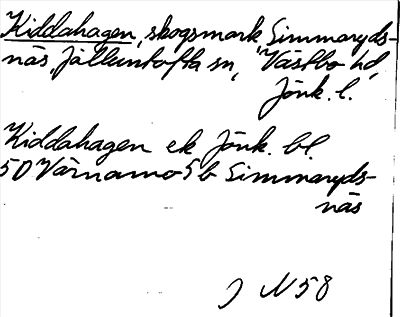 Kiddahagen, skogsmark Simmaryds-
näs, Jälluntofta sn, Västbo hd,
Jönk. l.
Kiddahagen ek Jönk. bl.
5D Värnamo 5b Simmaryds-
näs
J N58